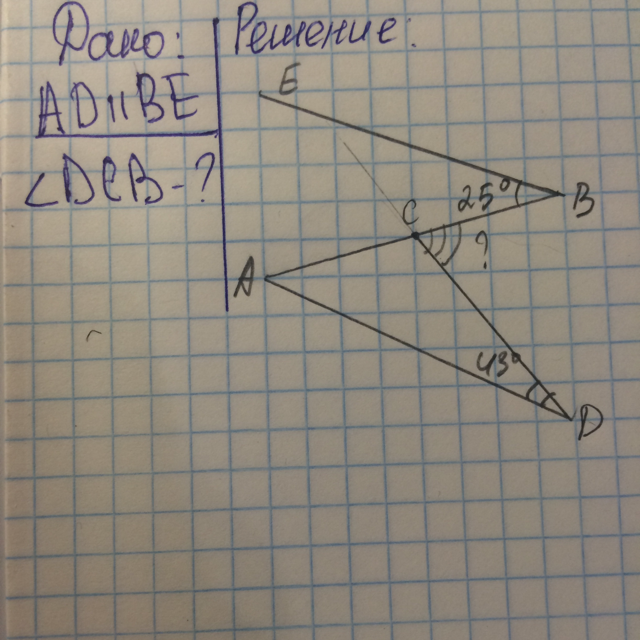 Дано:
Решение:
AD||BE
<DCB-?
E
25°
B
C
?
A
43°
D